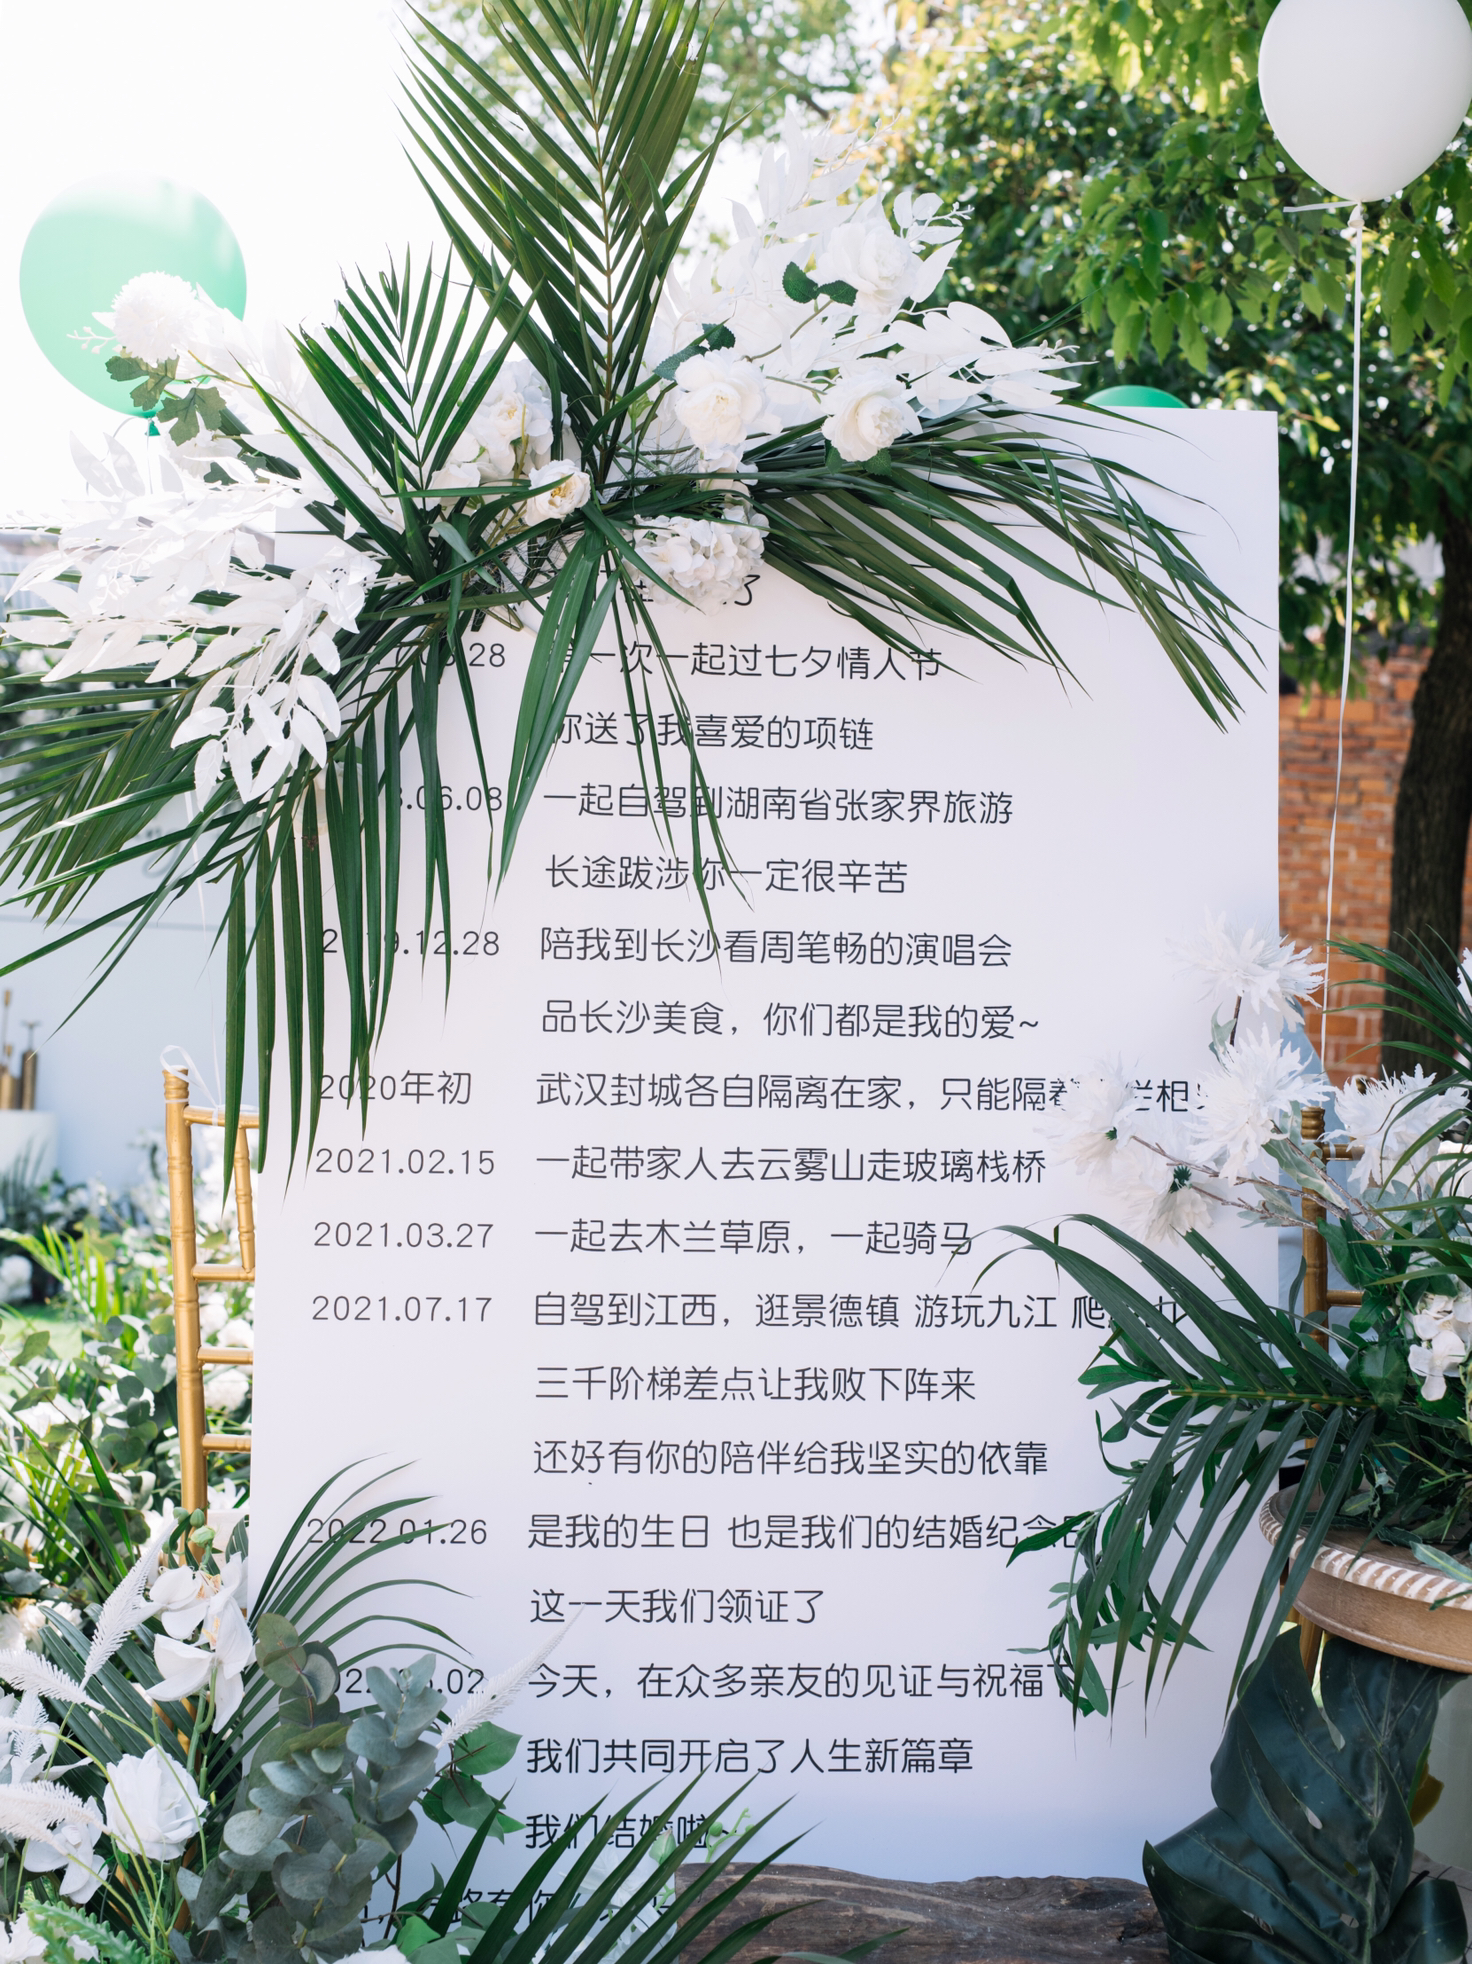 了
28 一次一起过七夕情人节
你送了我喜爱的项链
.06.08 一起自驾到湖南省张家界旅游
长途跋涉你一定很辛苦
2019.12.28 陪我到长沙看周笔畅的演唱会
品长沙美食，你们都是我的爱~
2020年初 武汉封城各自隔离在家，只能隔着 栏相
2021.02.15 一起带家人去云雾山走玻璃栈桥
2021.03.27 一起去木兰草原，一起骑马
2021.07.17 自驾到江西，逛景德镇 游玩九江 爬
三千阶梯差点让我败下阵来
还好有你的陪伴给我坚实的依靠
2022.01.26 是我的生日 也是我们的结婚纪念日
这一天我们领证了
.02 今天，在众多亲友的见证与祝福下
我们共同开启了人生新篇章
我们结婚啦~
路有你